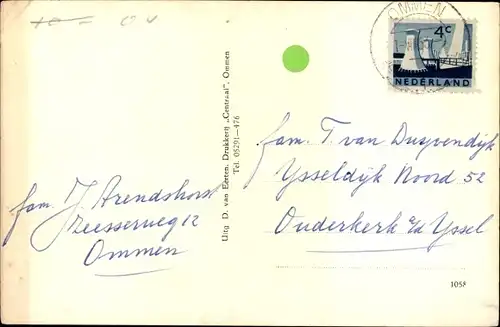 OMMEN
4c
NEDERLAND
Uitg D. van Eerten, Drukkerij „Centraal”, Ommen
Tel. 05291—476
fam. T. van Duyvendijk
Ysseldijk Noord 52
Ouderkerk a/d Yssel
fam. J. Arendshorst
Zeesserweg 12
Ommen
1058